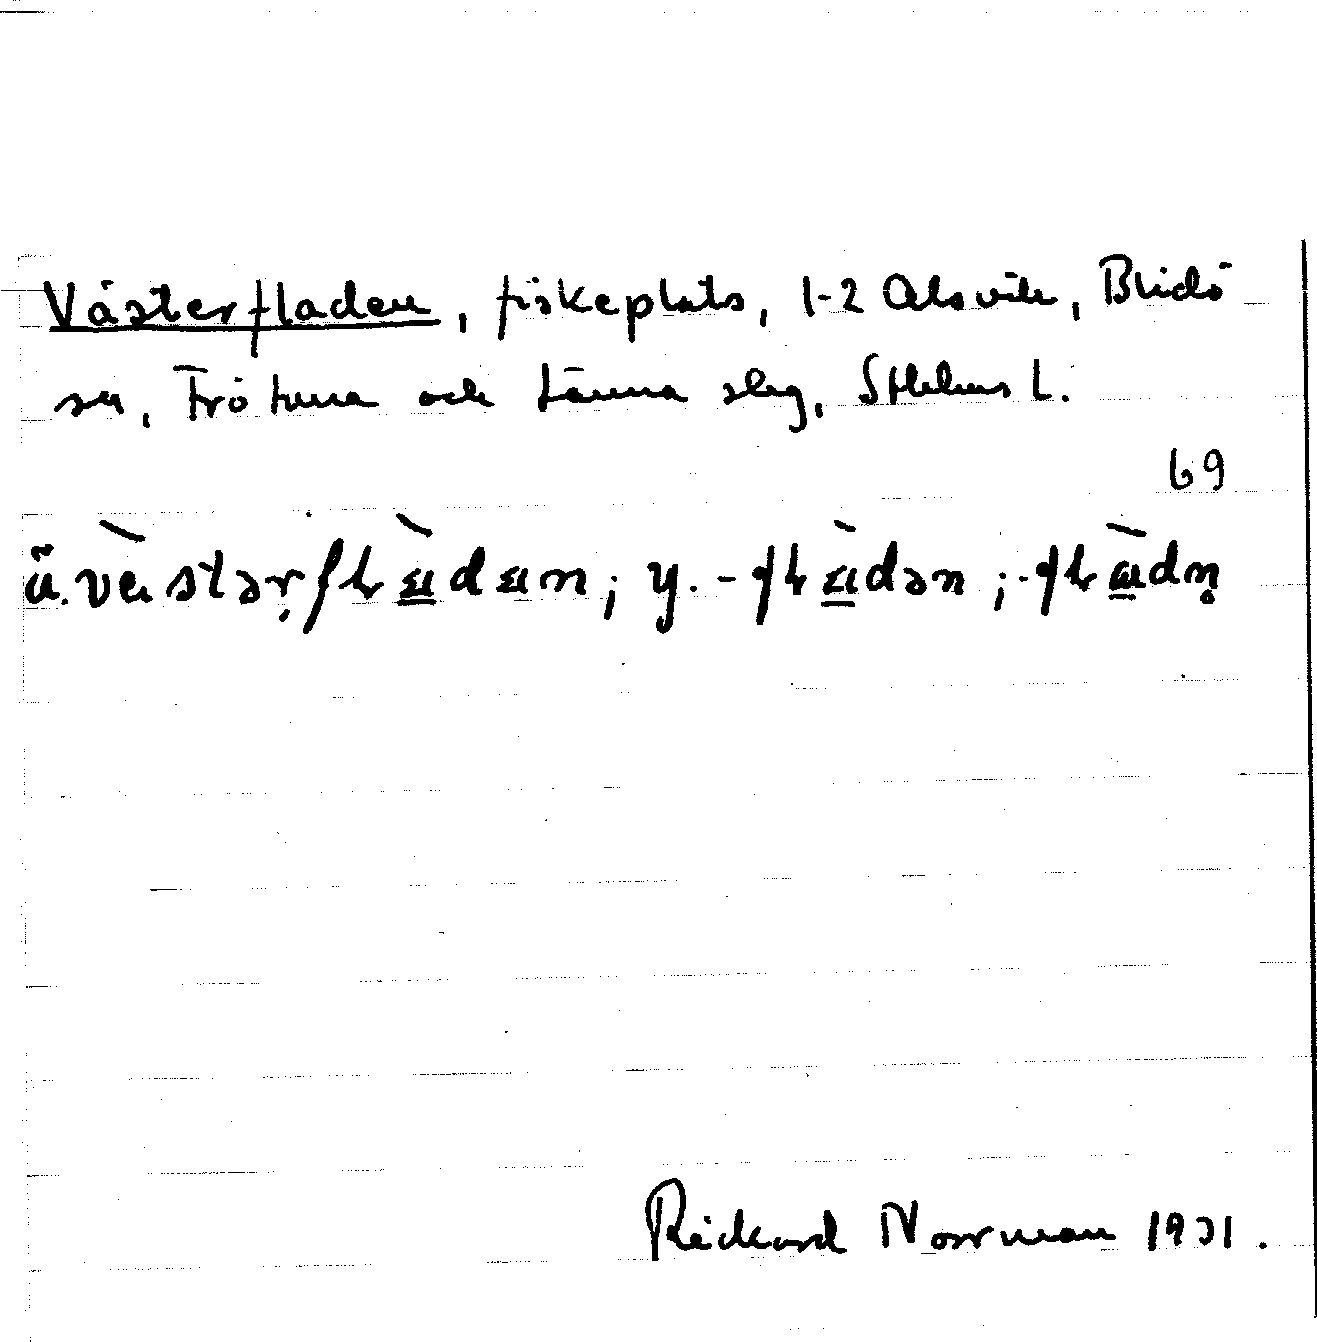 Västerfladen, fiskeplats, 1-2 Alsvik, Blidö
sn, Frötuna och Länna slg, Sthlms L.
69
ä. vèstərfḷàdan; y. -fḷàdən; -fḷàdn̥
Rickard Norrman 1931.